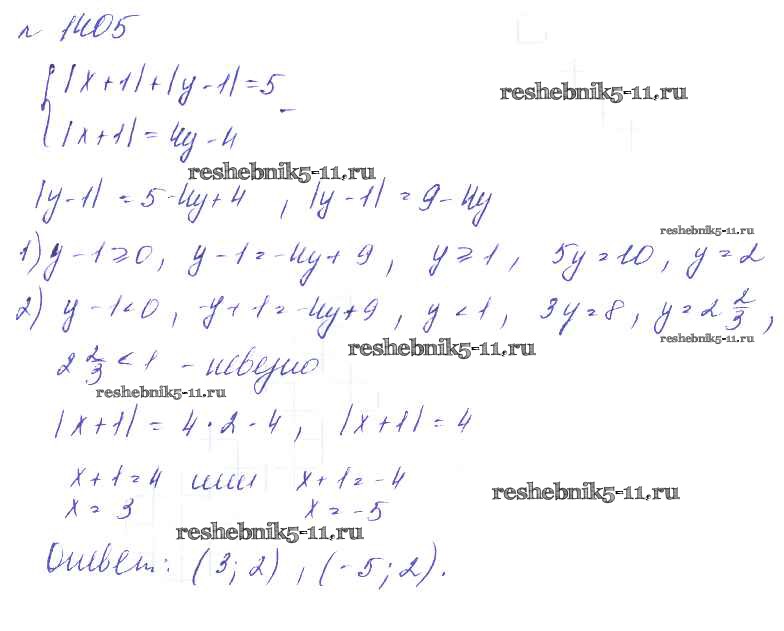 № 1405
{ |x+1|+|y-1|=5
reshebnik5-11.ru
|x+1|=4y-4
reshebnik5-11.ru
|y-1|=5-4y+4, |y-1|=9-4y
reshebnik5-11.ru
1) y-1≥0, y-1=-4y+9, y≥1, 5y=10, y=2
2) y-1<0, -y+1=-4y+9, y<1, 3y=8, y=2 2/3,
reshebnik5-11.ru
reshebnik5-11.ru
2 2/3<1 - неверно
reshebnik5-11.ru
|x+1|=4·2-4, |x+1|=4
x+1=4 или x+1=-4
reshebnik5-11.ru
x=3 x=-5
reshebnik5-11.ru
Ответ: (3;2), (-5;2).